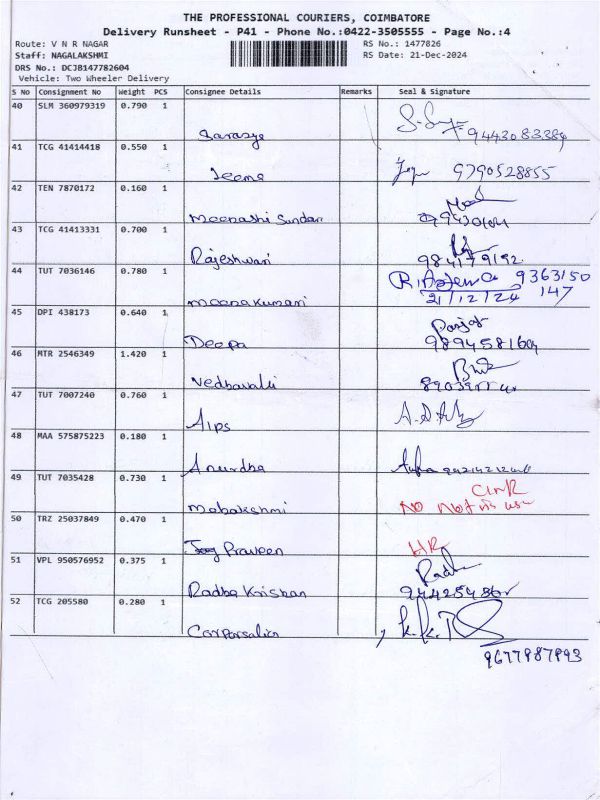 THE PROFESSIONAL COURIERS, COIMBATORE
Delivery Runsheet - P41 - Phone No.:0422-3505555 - Page No.:4
Route: V N R NAGAR RS No.: 1477826
Staff: NAGALAKSHMI RS Date: 21-Dec-2024
DRS No.: DCJB147782604
Vehicle: Two Wheeler Delivery
S No Consignment No Weight PCS Consignee Details Remarks Seal & Signature
40 SLM 360979319 0.790 1
9443083384
41 TCG 41414418 0.550 1
Jeema 9790528855
42 TEN 7870172 0.160 1
Meenashi Sundar
43 TCG 41413331 0.700 1
Rajeshwari
44 TUT 7036146 0.780 1
9363150
Meenakumari 21/12/24 147
45 DPI 438173 0.640 1
Deepa
46 MTR 2546349 1.420 1
Vedhavalli
47 TUT 7007240 0.760 1
Alps
48 MAA 575875223 0.180 1
Anurdha
49 TUT 7035428 0.730 1
Mahakshmi NO
50 TRZ 25037849 0.470 1
Praveen
51 VPL 950576952 0.375 1
Radha
Radha Krishan
52 TCG 205580 0.280 1
Corporsalion
9677987993